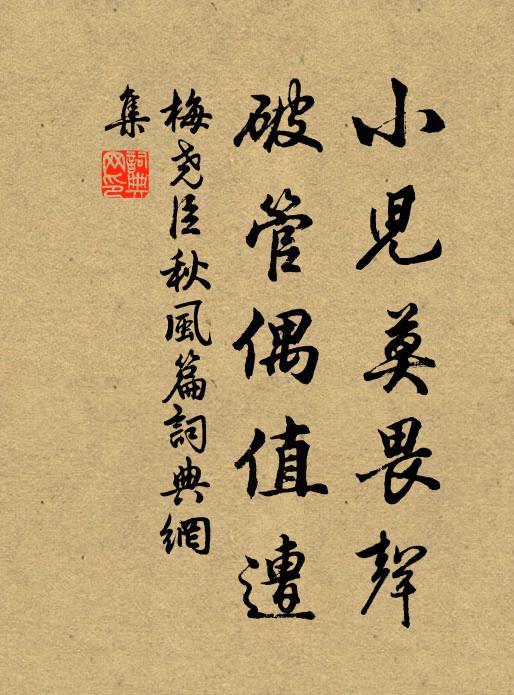 小兒莫畏聲
破管偶值遭
梅尧臣秋風篇詞典網
集
詞典网印